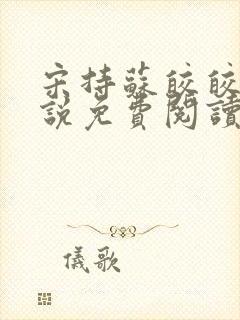 宋持蘇皎皎
說免費閱讀
儀歌